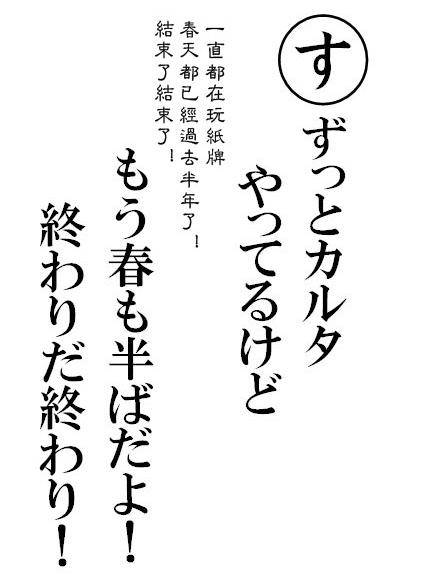 す
ずっとカルタ
やってるけど
一直都在玩紙牌
春天都已經過去半年了！
結束了結束了！
もう春も半ばだよ！
終わりだ終わり！